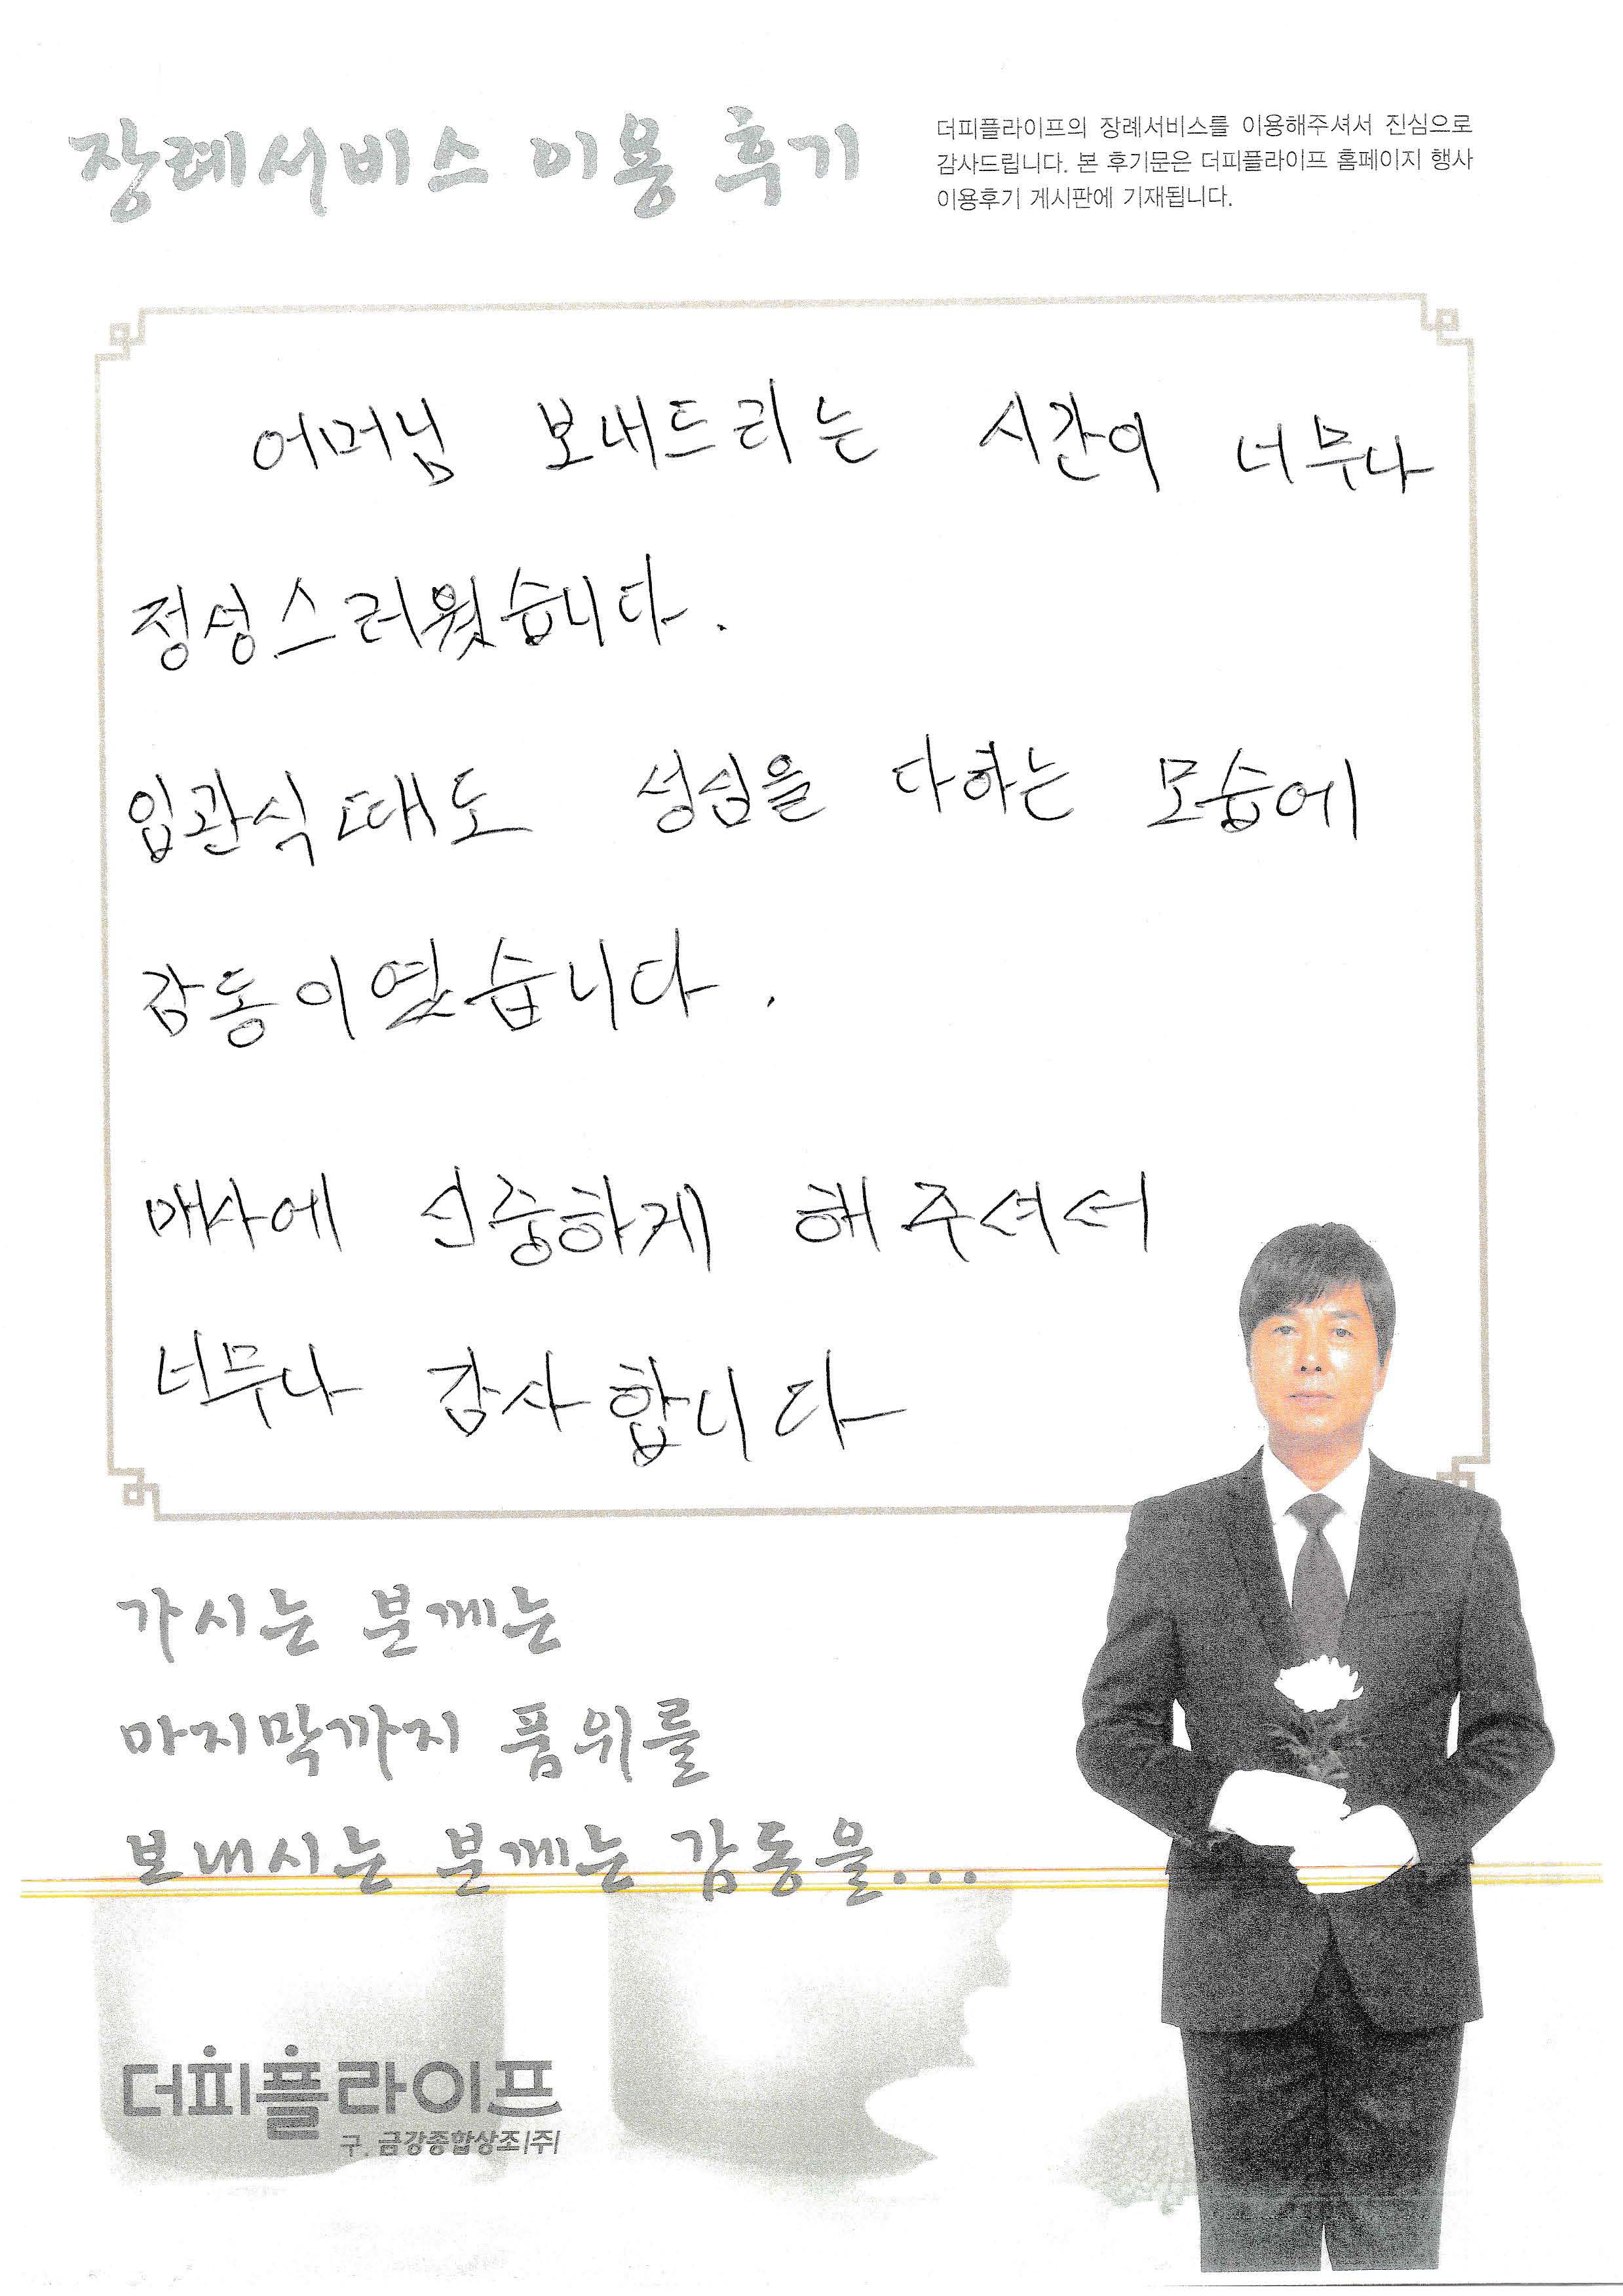 장례서비스 이용 후기
더피플라이프의 장례서비스를 이용해주셔서 진심으로
감사드립니다. 본 후기문은 더피플라이프 홈페이지 행사
이용후기 게시판에 기재됩니다.
어머님 보내드리는 시간이 너무나
정성스러웠습니다.
입관식때도 성심을 다하는 모습에
감동이였습니다.
매사에 신중하게 해주셔서
너무나 감사합니다
가시는 분께는
마지막까지 품위를
보내시는 분께는 감동을...
더피플라이프
구. 금강종합상조|주|